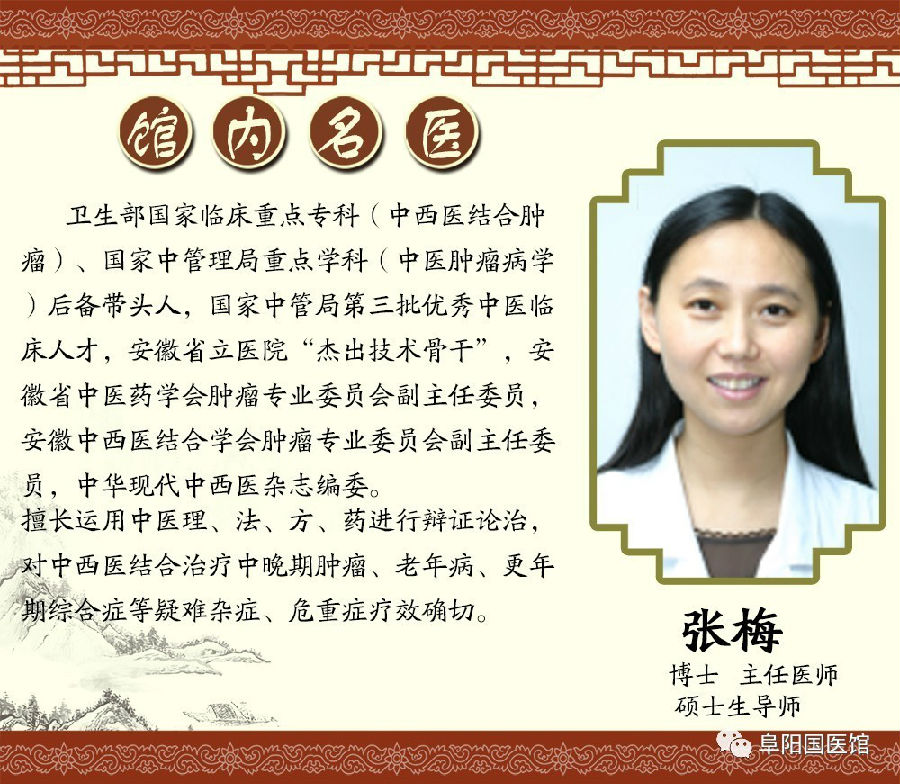 馆内名医
卫生部国家临床重点专科（中西医结合肿
瘤）、国家中管理局重点学科（中医肿瘤病学
）后备带头人，国家中管局第三批优秀中医临
床人才，安徽省立医院“杰出技术骨干”，安
徽省中医药学会肿瘤专业委员会副主任委员，
安徽中西医结合学会肿瘤专业委员会副主任委
员，中华现代中西医杂志编委。
擅长运用中医理、法、方、药进行辩证论治，
对中西医结合治疗中晚期肿瘤、老年病、更年
期综合症等疑难杂症、危重症疗效确切。
张梅
博士 主任医师
硕士生导师
阜阳国医馆